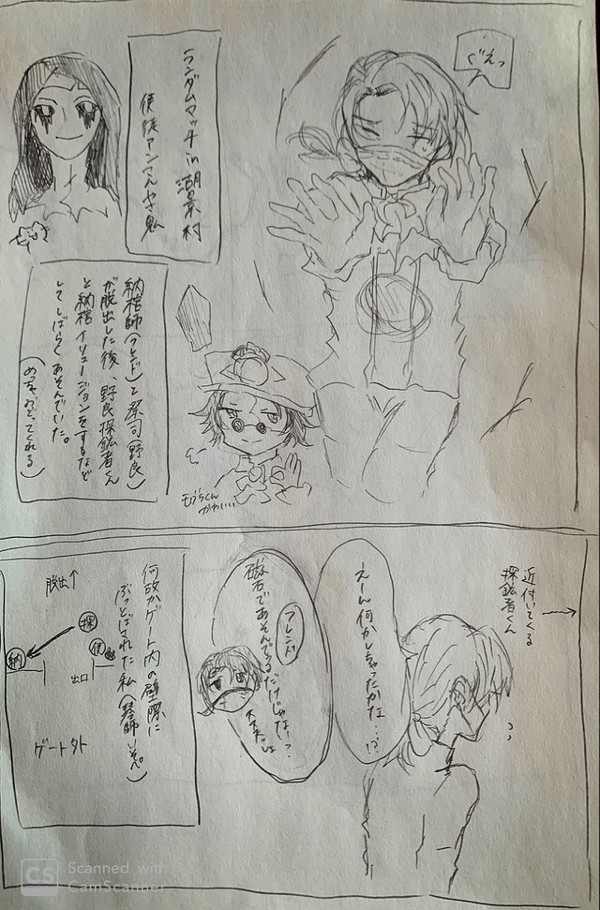 ぐえっ
ランダムマッチ in 湖景村
使徒アンさんやさ鬼
納棺師(フレンド)と祭司(野良)
が脱出した後、野良探鉱者くん
と納棺イリュージョンをするなど
してしばらくあそんでいた。
(めっちゃおどってくれる)
モグラくん
かわいい
近付いてくる
探鉱者くん
えーん何かしちゃったかな…!?
フレンド
磁石であそんでるだけじゃない?
何故かゲート内の壁際に
ぶっとばされた私
脱出↑
探
使
納
出口
ゲート外
CS
Scanned with
CamScanner